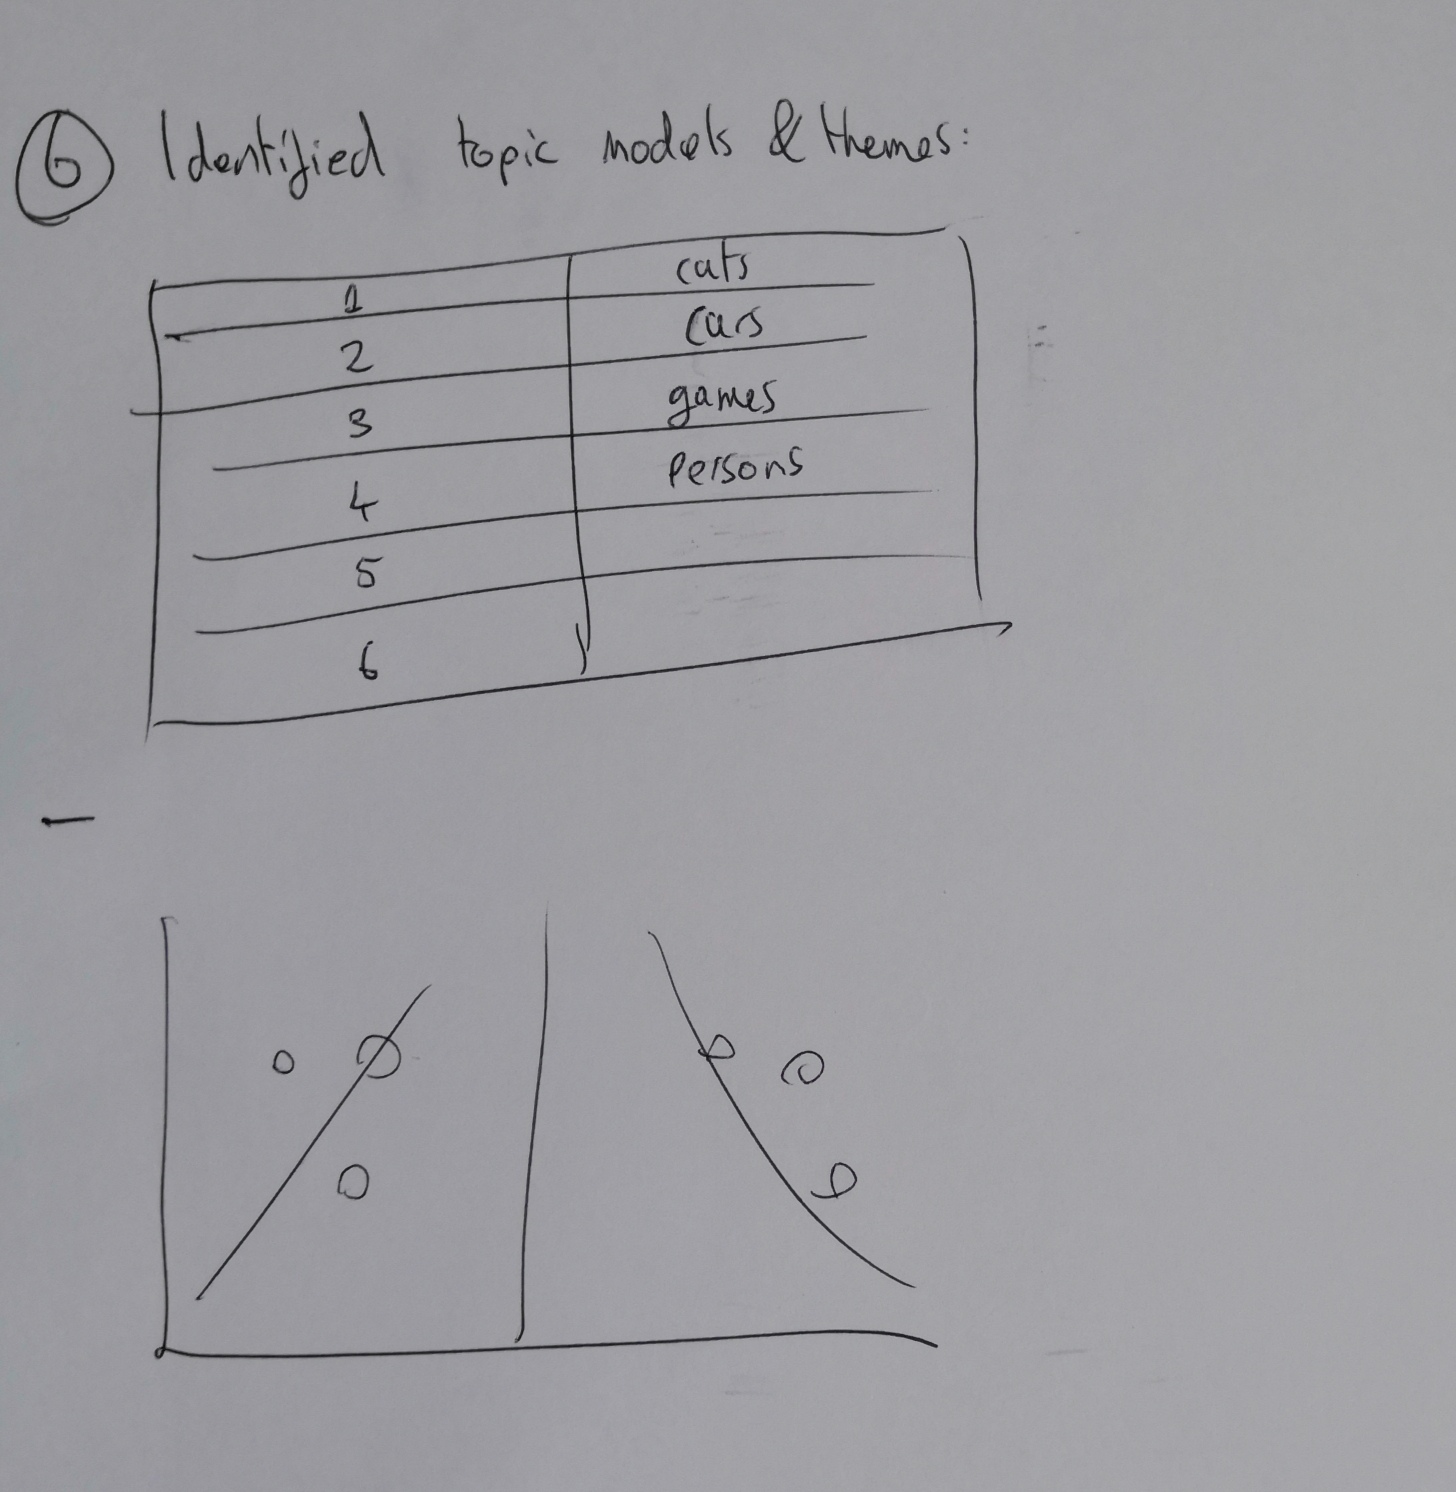 6 Identified topic models & themes:
1 cats
2 cars
3 games
4 Persons
5
6